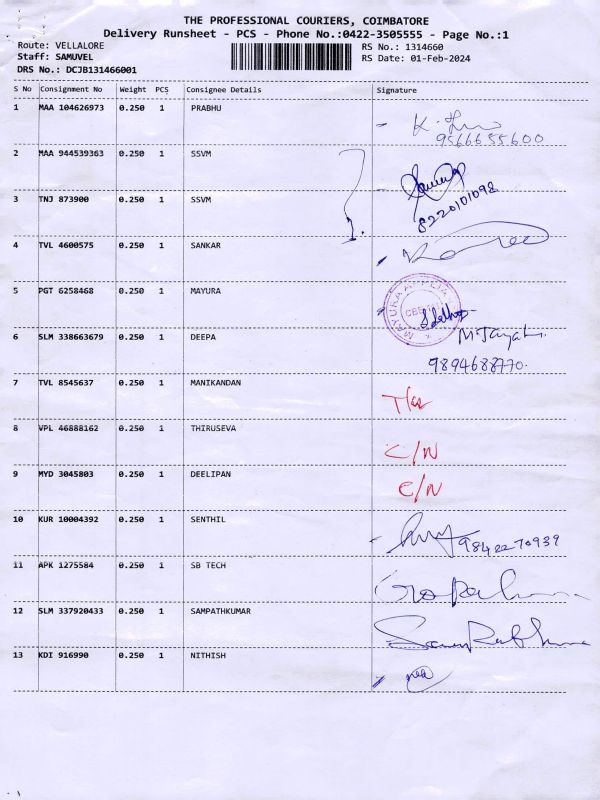 THE PROFESSIONAL COURIERS, COIMBATORE
Delivery Runsheet - PCS - Phone No.:0422-3505555 - Page No.:1
Route: VELLALORE RS No.: 1314660
Staff: SAMUVEL RS Date: 01-Feb-2024
DRS No.: DCJB131466001
S No Consignment No Weight PCS Consignee Details Signature
1 MAA 104626973 0.250 1 PRABHU
9566655600
2 MAA 944539363 0.250 1 SSVM
3 TNJ 873900 0.250 1 SSVM 8220101098
4 TVL 4600575 0.250 1 SANKAR
5 PGT 6258468 0.250 1 MAYURA
MAYURA
6 SLM 338663679 0.250 1 DEEPA
9894688770
7 TVL 8545637 0.250 1 MANIKANDAN
8 VPL 46888162 0.250 1 THIRUSEVA C/N
9 MYD 3045803 0.250 1 DEELIPAN C/N
10 KUR 10004392 0.250 1 SENTHIL 9842270939
11 APK 1275584 0.250 1 SB TECH
12 SLM 337920433 0.250 1 SAMPATHKUMAR
13 KDI 916990 0.250 1 NITHISH